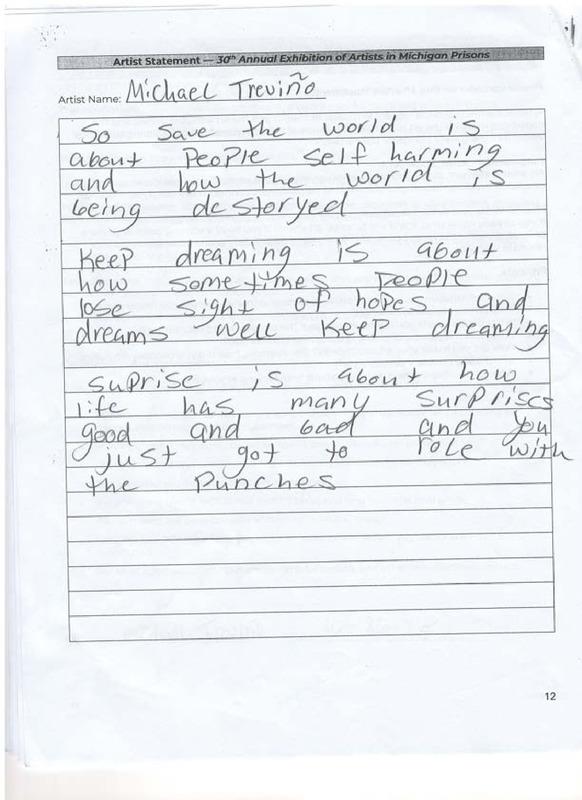 Artist Statement — 30th Annual Exhibition of Artists in Michigan Prisons
Artist Name: Michael Treviño
So save the world is
about People self harming
and how the world is
being destoryed
Keep dreaming is about
how sometimes People
lose sight of hopes and
dreams well keep dreaming
suprise is about how
life has many surprises
good and bad and you
just got to role with
the Punches
12